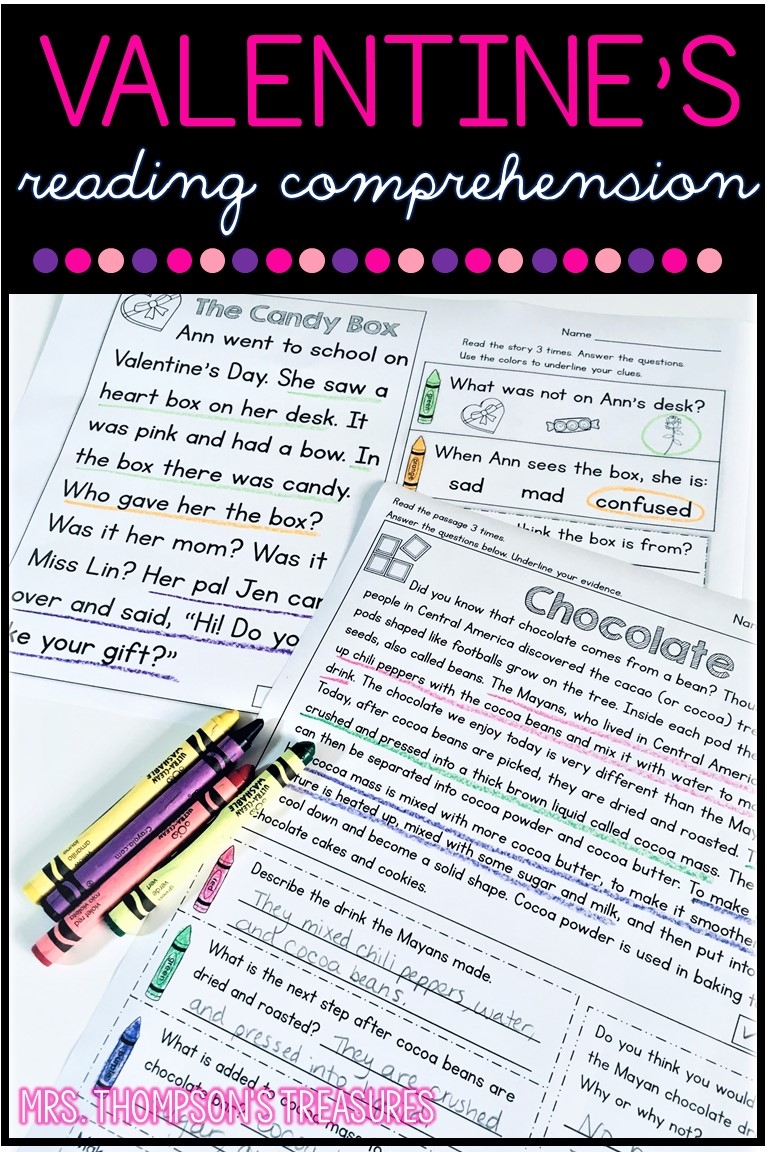 VALENTINE'S
reading comprehension
The Candy Box
Ann went to school on
Valentine's Day. She saw a
heart box on her desk. It
was pink and had a bow. In
the box there was candy.
Who gave her the box?
Was it her mom? Was it
Miss Lin? Her pal Jen
over and said, "Hi! Do
your gift?"
Name
Read the story 3 times. Answer the questions.
Use the colors to underline your clues.
green
What was not on Ann's desk?
orange
When Ann sees the box, she is:
sad mad confused
think the box is from?
Read the passage 3 times.
Answer the questions below. Underline your evidence.
Chocolate
Did you know that chocolate comes from a bean?
people in Central America discovered the cacao (or cocoa)
pods shaped like footballs grow on the tree. Inside each pod
seeds, also called beans. The Mayans, who lived in Central
up chili peppers with the cocoa beans and mix it with water to
drink. The chocolate we enjoy today is very different than the
Today, after cocoa beans are picked, they are dried and roasted.
crushed and pressed into a thick brown liquid called cocoa mass. The
can then be separated into cocoa powder and cocoa butter. To make
cocoa mass is mixed with more cocoa butter, to make it
is heated up, mixed with some sugar and milk, and then put into
cool down and become a solid shape. Cocoa powder is used in baking
chocolate cakes and cookies.
ULTRA-CLEAN
WASHABLE
Crayola.com
violet red
red
Describe the drink the Mayans made.
They mixed chili peppers, water,
and cocoa beans.
green
What is the next step after cocoa beans are
dried and roasted? They are crushed
and pressed into
What is added to cocoa mass to
chocolate
Do you think you would
the Mayan chocolate
Why or why not?
MRS. THOMPSON'S TREASURES